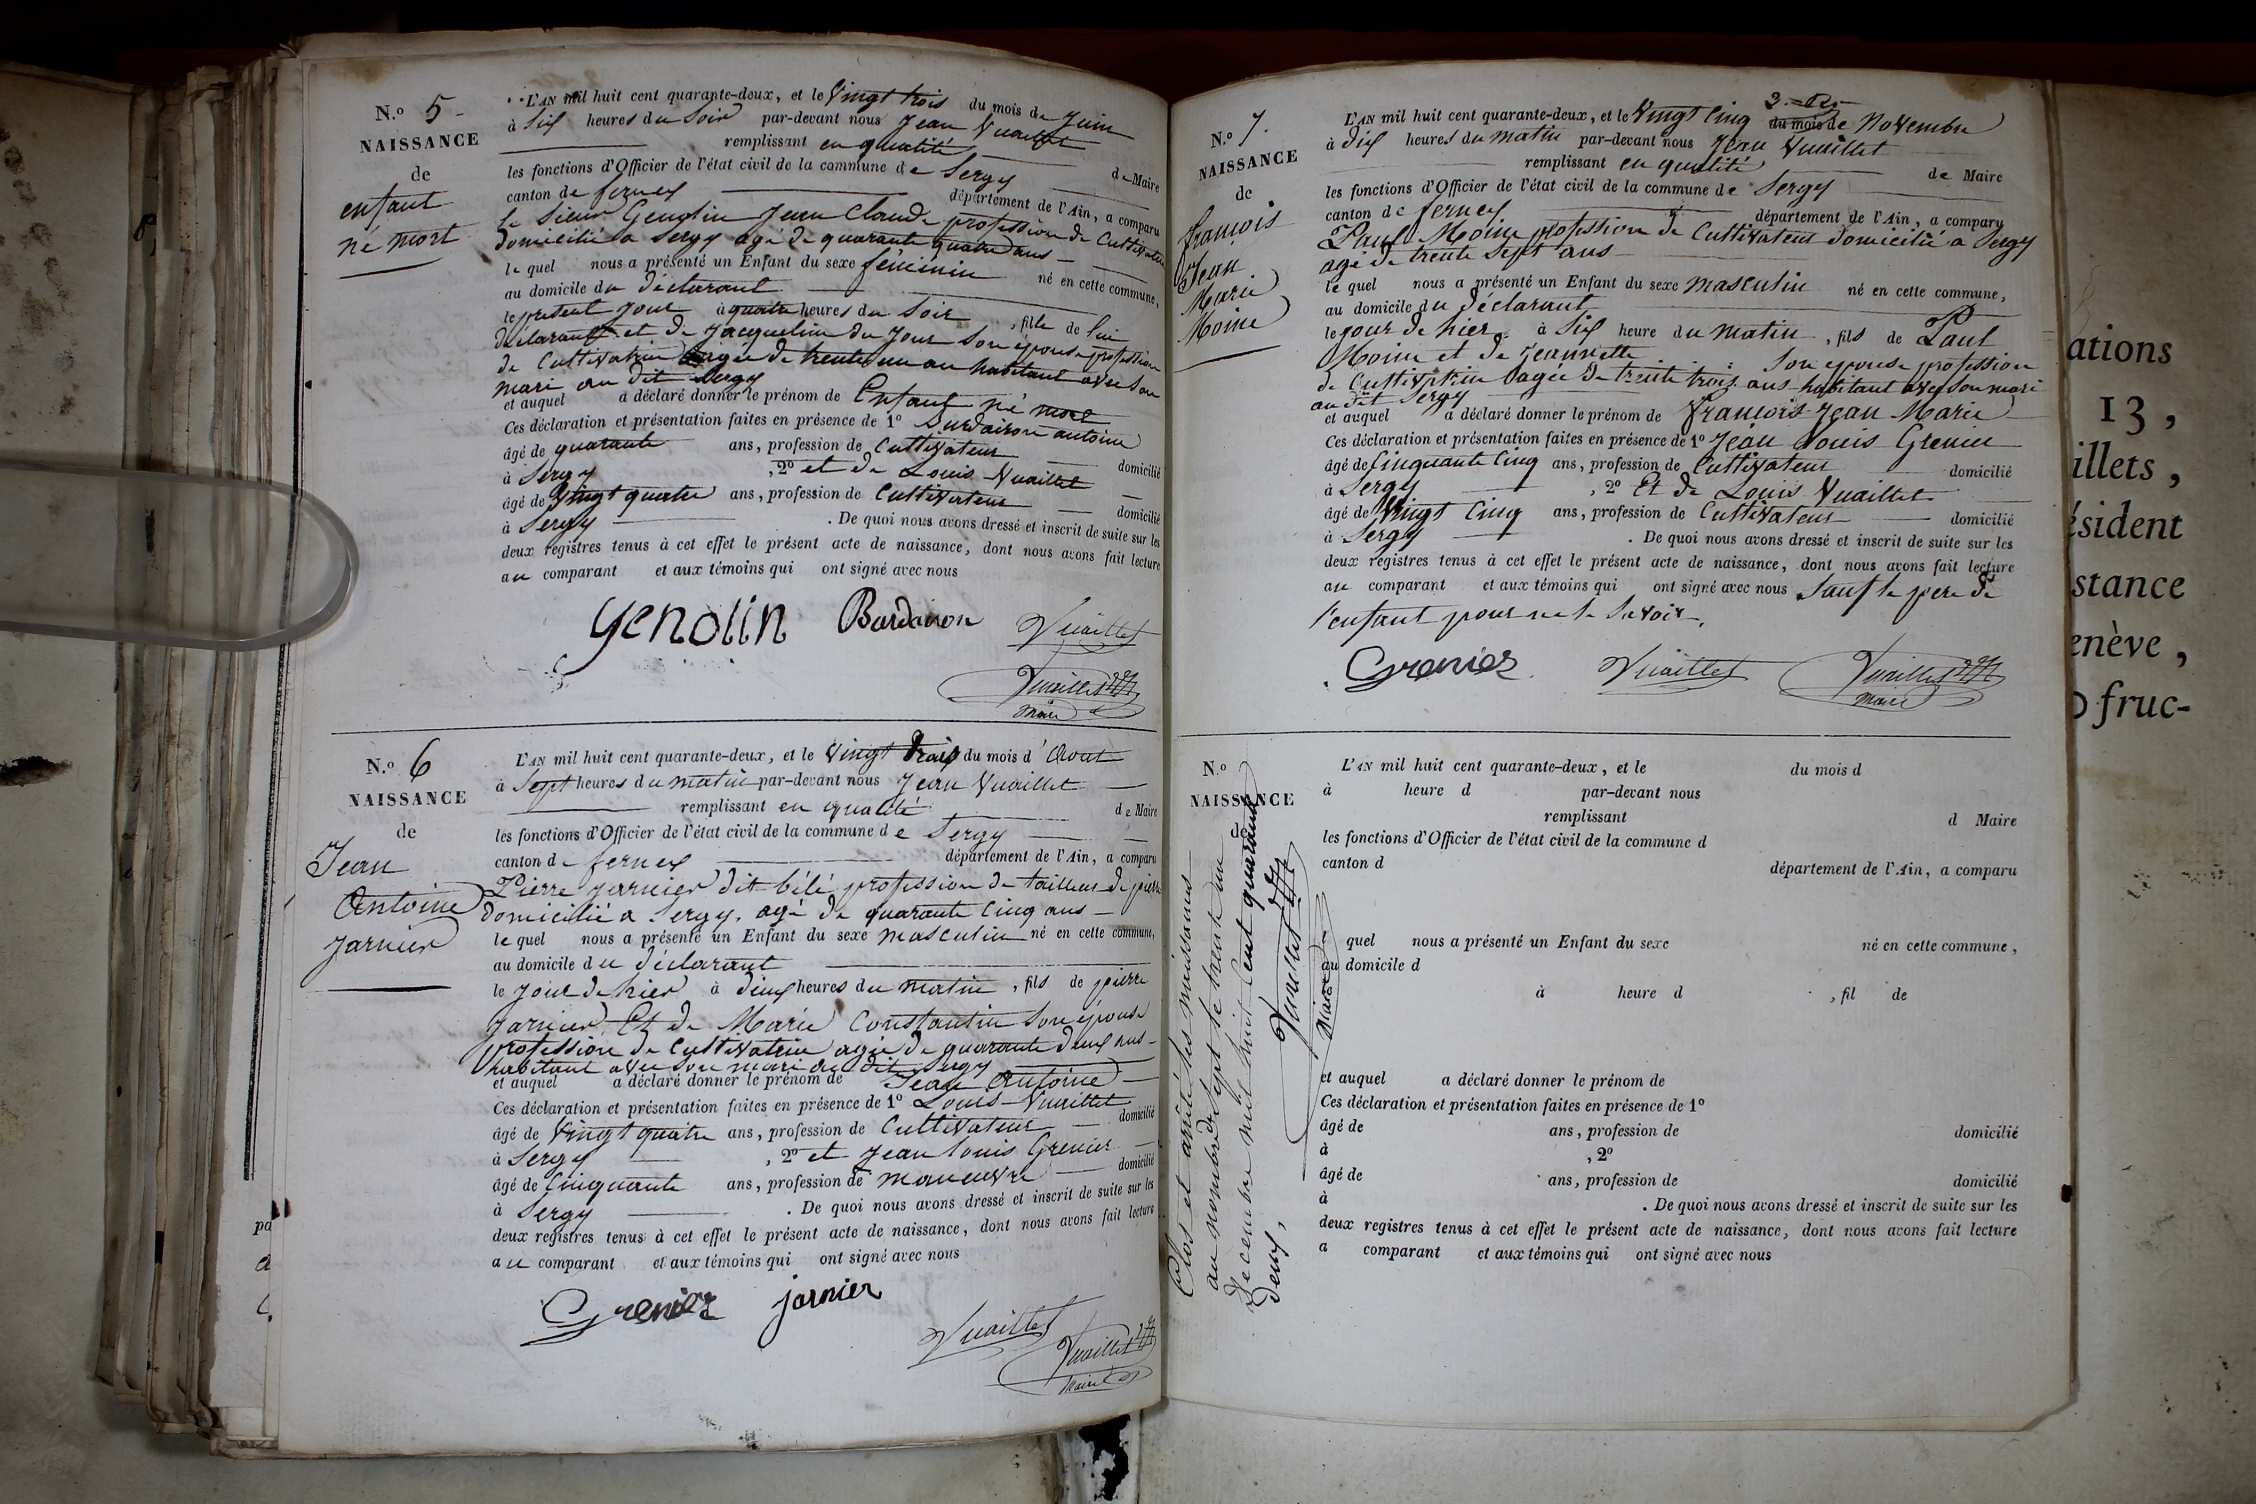 N.º 5
NAISSANCE
de
enfant
né mort
L'AN mil huit cent quarante-deux, et le Vingt trois du mois de Juin
à Six heures du Soir par-devant nous Jean Vuaillet
remplissant en qualité de Maire
les fonctions d'Officier de l'état civil de la commune de Sergy
canton de fernex département de l'Ain, a comparu
le Sieur Genolin Jean Claude profession de Cultivateur
domicilié a Sergy agé de quarante quatre ans
le quel nous a présenté un Enfant du sexe féminin né en cette commune,
au domicile du déclarant
le present jour à quatre heures du Soir, fille de lui
déclarant et de Jacqueline du Jour Son épouse profession
de Cultivatrice agée de trente un an habitant avec Son
mari au dit Sergy
et auquel a déclaré donner le prénom de Enfant né mort
Ces déclaration et présentation faites en présence de 1º Burdairon antoine
âgé de quarante ans, profession de Cultivateur domicilié
à Sergy, 2º et de Louis Vuaillet
âgé de Vingt quatre ans, profession de Cultivateur domicilié
à Sergy. De quoi nous avons dressé et inscrit de suite sur les
deux registres tenus à cet effet le présent acte de naissance, dont nous avons fait lecture
au comparant et aux témoins qui ont signé avec nous
Genolin Burdairon Vuaillet
Vuaillet
Maire
N.º 6
NAISSANCE
de
Jean
Antoine
Jarnier
L'AN mil huit cent quarante-deux, et le Vingt trois du mois d'Aout
à Sept heures du matin par-devant nous Jean Vuaillet
remplissant en qualité de Maire
les fonctions d'Officier de l'état civil de la commune de Sergy
canton de fernex département de l'Ain, a comparu
Pierre Jarnier dit bélé profession de tailleur de pierre
domicilié a Sergy, agé de quarante Cinq ans
le quel nous a présenté un Enfant du sexe masculin né en cette commune,
au domicile du déclarant
le jour de hier à deux heures du matin, fils de pierre
Jarnier Et de Marie Constantin Son épouse
profession de Cultivatrice agée de quarante deux ans
habitant avec Son mari au dit Sergy
et auquel a déclaré donner le prénom de Jean Antoine
Ces déclaration et présentation faites en présence de 1º Louis Vuaillet
âgé de Vingt quatre ans, profession de Cultivateur domicilié
à Sergy, 2º et Jean Louis Grenier
âgé de Cinquante ans, profession de manœuvre domicilié
à Sergy. De quoi nous avons dressé et inscrit de suite sur les
deux registres tenus à cet effet le présent acte de naissance, dont nous avons fait lecture
au comparant et aux témoins qui ont signé avec nous
Grenier jarnier
Vuaillet
Vuaillet
Maire
N.º 7.
NAISSANCE
de
françois
Jean
Marie
Moine
L'AN mil huit cent quarante-deux, et le Vingt Cinq du mois de Novembre
à dix heures du matin par-devant nous Jean Vuaillet
remplissant en qualité de Maire
les fonctions d'Officier de l'état civil de la commune de Sergy
canton de fernex département de l'Ain, a comparu
Paul Moine profession de Cultivateur domicilié a Sergy
agé de trente Sept ans
le quel nous a présenté un Enfant du sexe masculin né en cette commune,
au domicile du déclarant
le jour de hier à Six heure du matin, fils de Paul
Moine et de Jeannette Son epouse profession
de Cultivatrice agée de trente trois ans habitant avec Son mari
au dit Sergy
et auquel a déclaré donner le prénom de François Jean Marie
Ces déclaration et présentation faites en présence de 1º Jean Louis Grenier
âgé de Cinquante Cinq ans, profession de Cultivateur domicilié
à Sergy, 2º Et de Louis Vuaillet
âgé de Vingt Cinq ans, profession de Cultivateur domicilié
à Sergy. De quoi nous avons dressé et inscrit de suite sur les
deux registres tenus à cet effet le présent acte de naissance, dont nous avons fait lecture
au comparant et aux témoins qui ont signé avec nous Sauf le pere de
l'enfant pour ne le Savoir.
Grenier Vuaillet Vuaillet
Maire
N.º
NAISSANCE
de
Clos et arrêté les naissances
au nombre de Sept le trente un
Décembre mil huit Cent quarante
deux,
Vuaillet
Maire
L'AN mil huit cent quarante-deux, et le du mois d
à heure d par-devant nous
remplissant d Maire
les fonctions d'Officier de l'état civil de la commune d
canton d département de l'Ain, a comparu
quel nous a présenté un Enfant du sexe né en cette commune,
au domicile d
à heure d , fil de
et auquel a déclaré donner le prénom de
Ces déclaration et présentation faites en présence de 1º
âgé de ans, profession de domicilié
à , 2º
âgé de ans, profession de domicilié
à . De quoi nous avons dressé et inscrit de suite sur les
deux registres tenus à cet effet le présent acte de naissance, dont nous avons fait lecture
a comparant et aux témoins qui ont signé avec nous
ations
13,
illets,
ésident
stance
enève,
fruc-